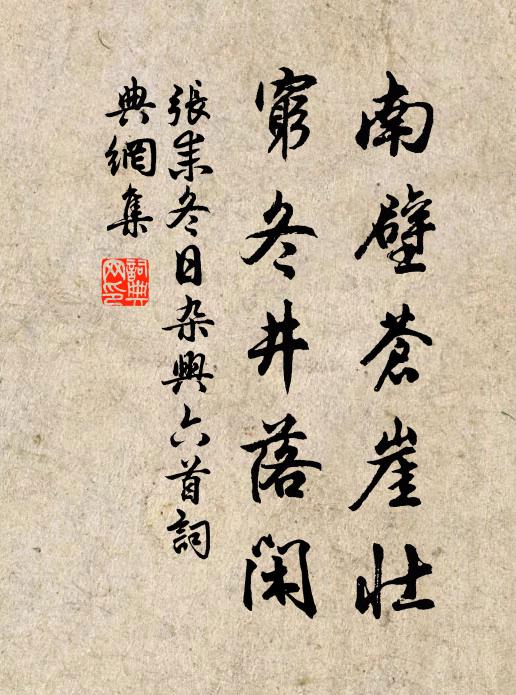 南壁蒼崖壯
窮冬井落閑
張耒冬日杂興六首詞
典網集
詞典网印